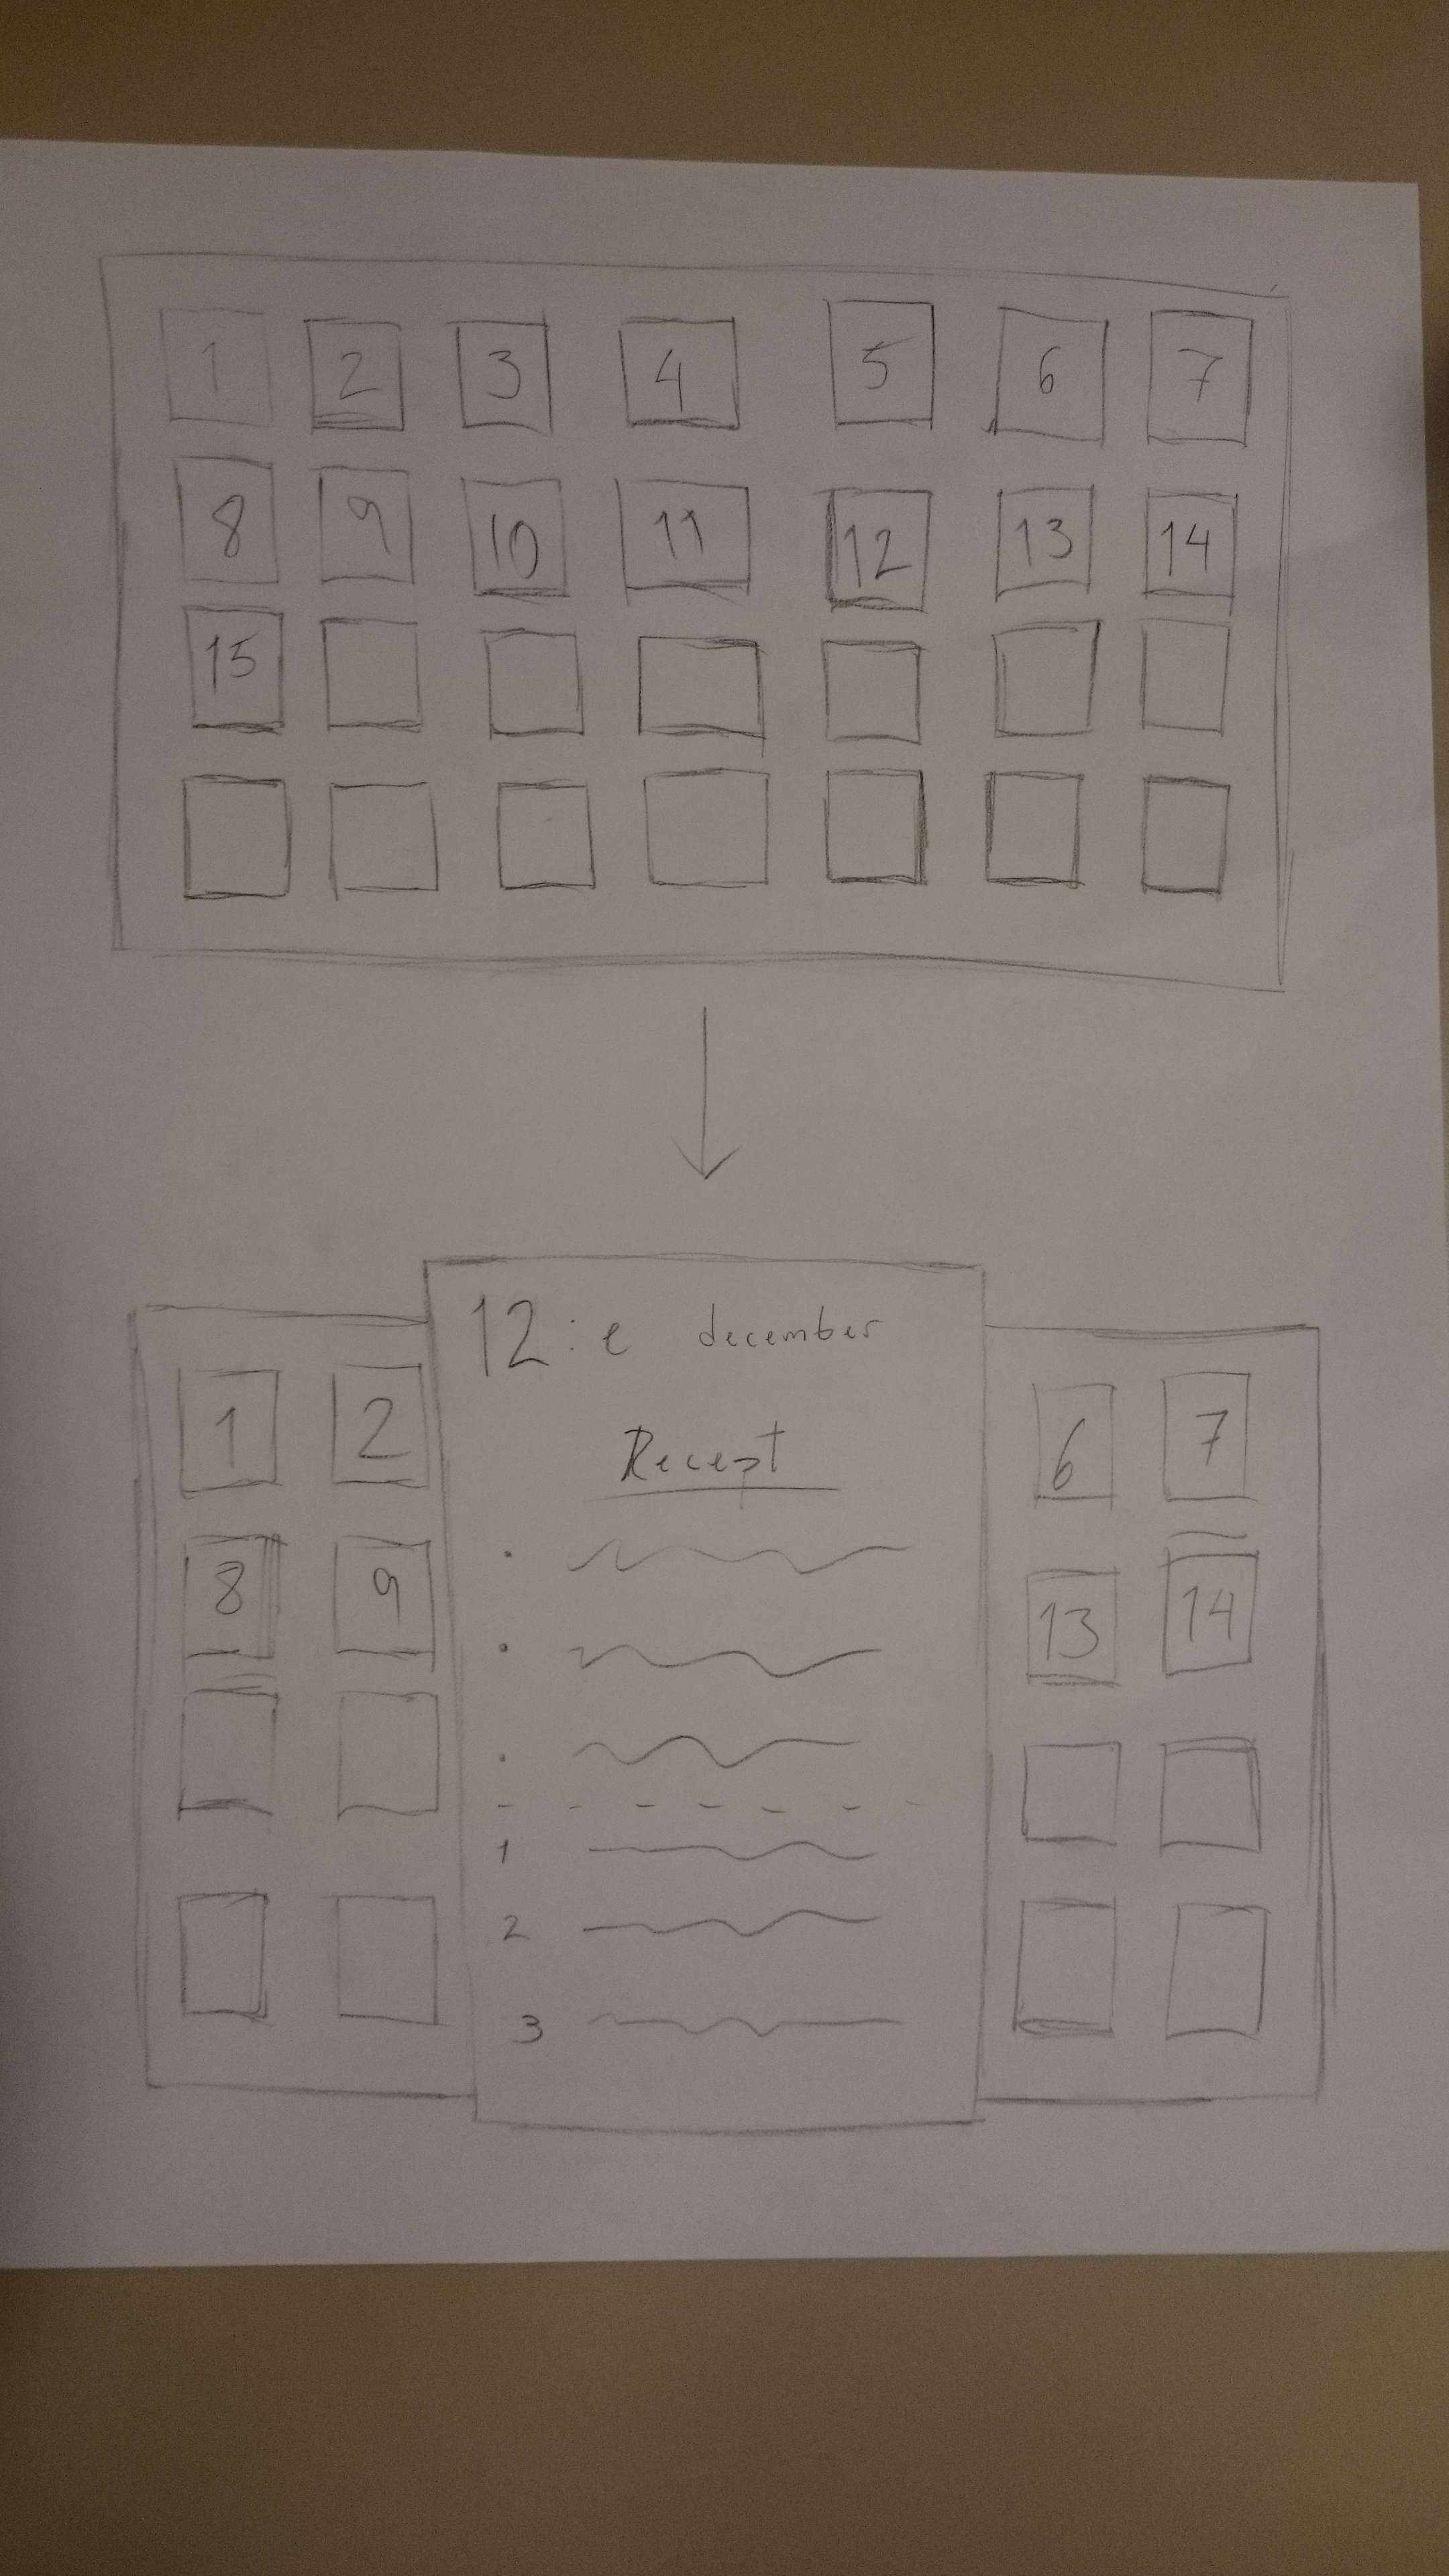 1 2 3 4 5 6 7
8 9 10 11 12 13 14
15
12:e december
Recept
1 2
6 7
8 9
13 14
1
2
3